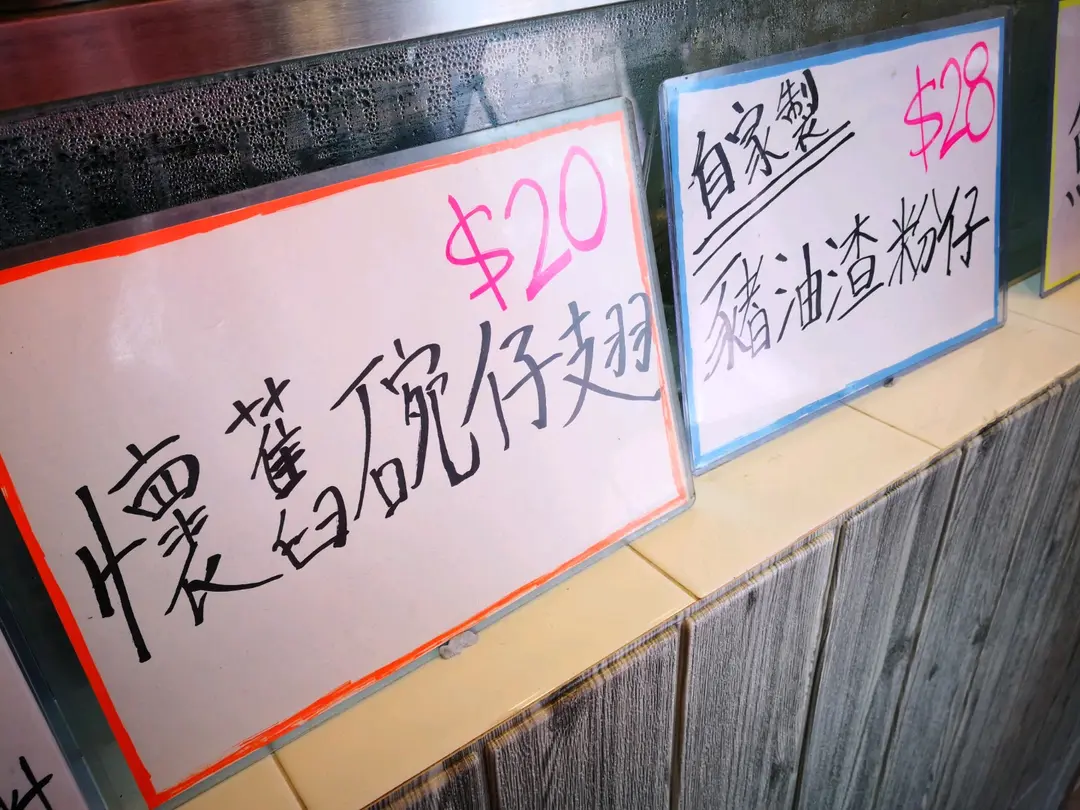 $20
懷舊碗仔翅
自家製
$28
豬油渣粉仔